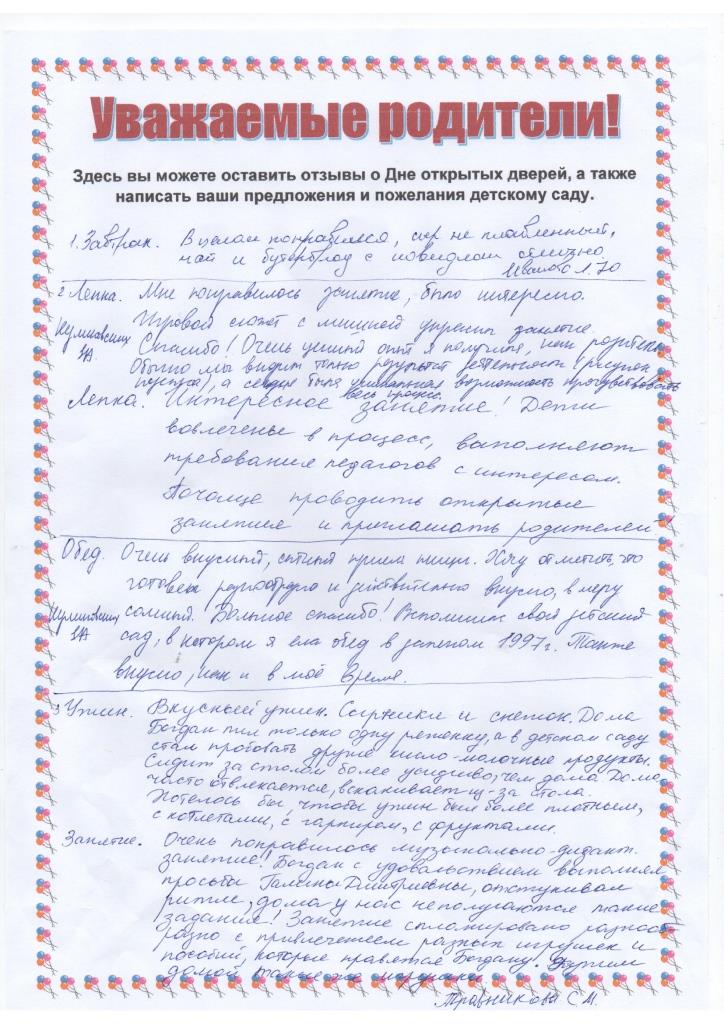 Уважаемые родители!
Здесь вы можете оставить отзывы о Дне открытых дверей, а также
написать ваши предложения и пожелания детскому саду.
1. Завтрак. В целом понравилось, сыр не плавленный,
чай и бутерброд с повидлом отлично
Иванова Л.Ю
2 Лепка. Мне понравилось занятие, было интересно.
Игровой сюжет с мишкой украсил занятие.
Куликовских Спасибо! Очень ценный опыт я получила, как родитель.
Обычно мы видим только результат деятельности (рисунок
поделка), а сегодня была уникальная возможность прочувствовать
весь процесс.
Лепка. Интересное занятие! Дети
вовлеченье в процесс, выполняют
требования педагогов с интересом.
Почаще проводить открытые
занятия и приглашать родителей
Обед. Очень вкусный, сытный прием пищи. Хочу отметить, что
готовят разнообразно и действительно вкусно, в меру
Куликовских солёный. Большое спасибо! Вспомнила свой детский
сад, в котором я ела обед в далеком 1997г. Также
вкусно, как и в моё время.
3 Ужин. Вкусный ужин. Сырники и снежок. Дома
Богдан пил только одну ряженку, а в детском саду
стал пробовать другие кисло-молочные продукты.
Сидит за столом более усидчиво, чем дома. Дома
часто отвлекается, вскакивает из-за стола.
Хотелось бы чтобы ужин был более плотным,
с котлетами, с гарниром, с фруктами.
Занятие. Очень понравилось музыкально-дидакт.
занятие! Богдан с удовольствием выполнял
просьбы Галины Дмитриевны, отстукивал
ритм, дома у нас не получаются такие
задания! Занятие спланировано разнооб-
разно с привлечением разных игрушек и
пособий, которые нравятся Богдану. Купим
домой такие же игрушки
Травникова С.М.